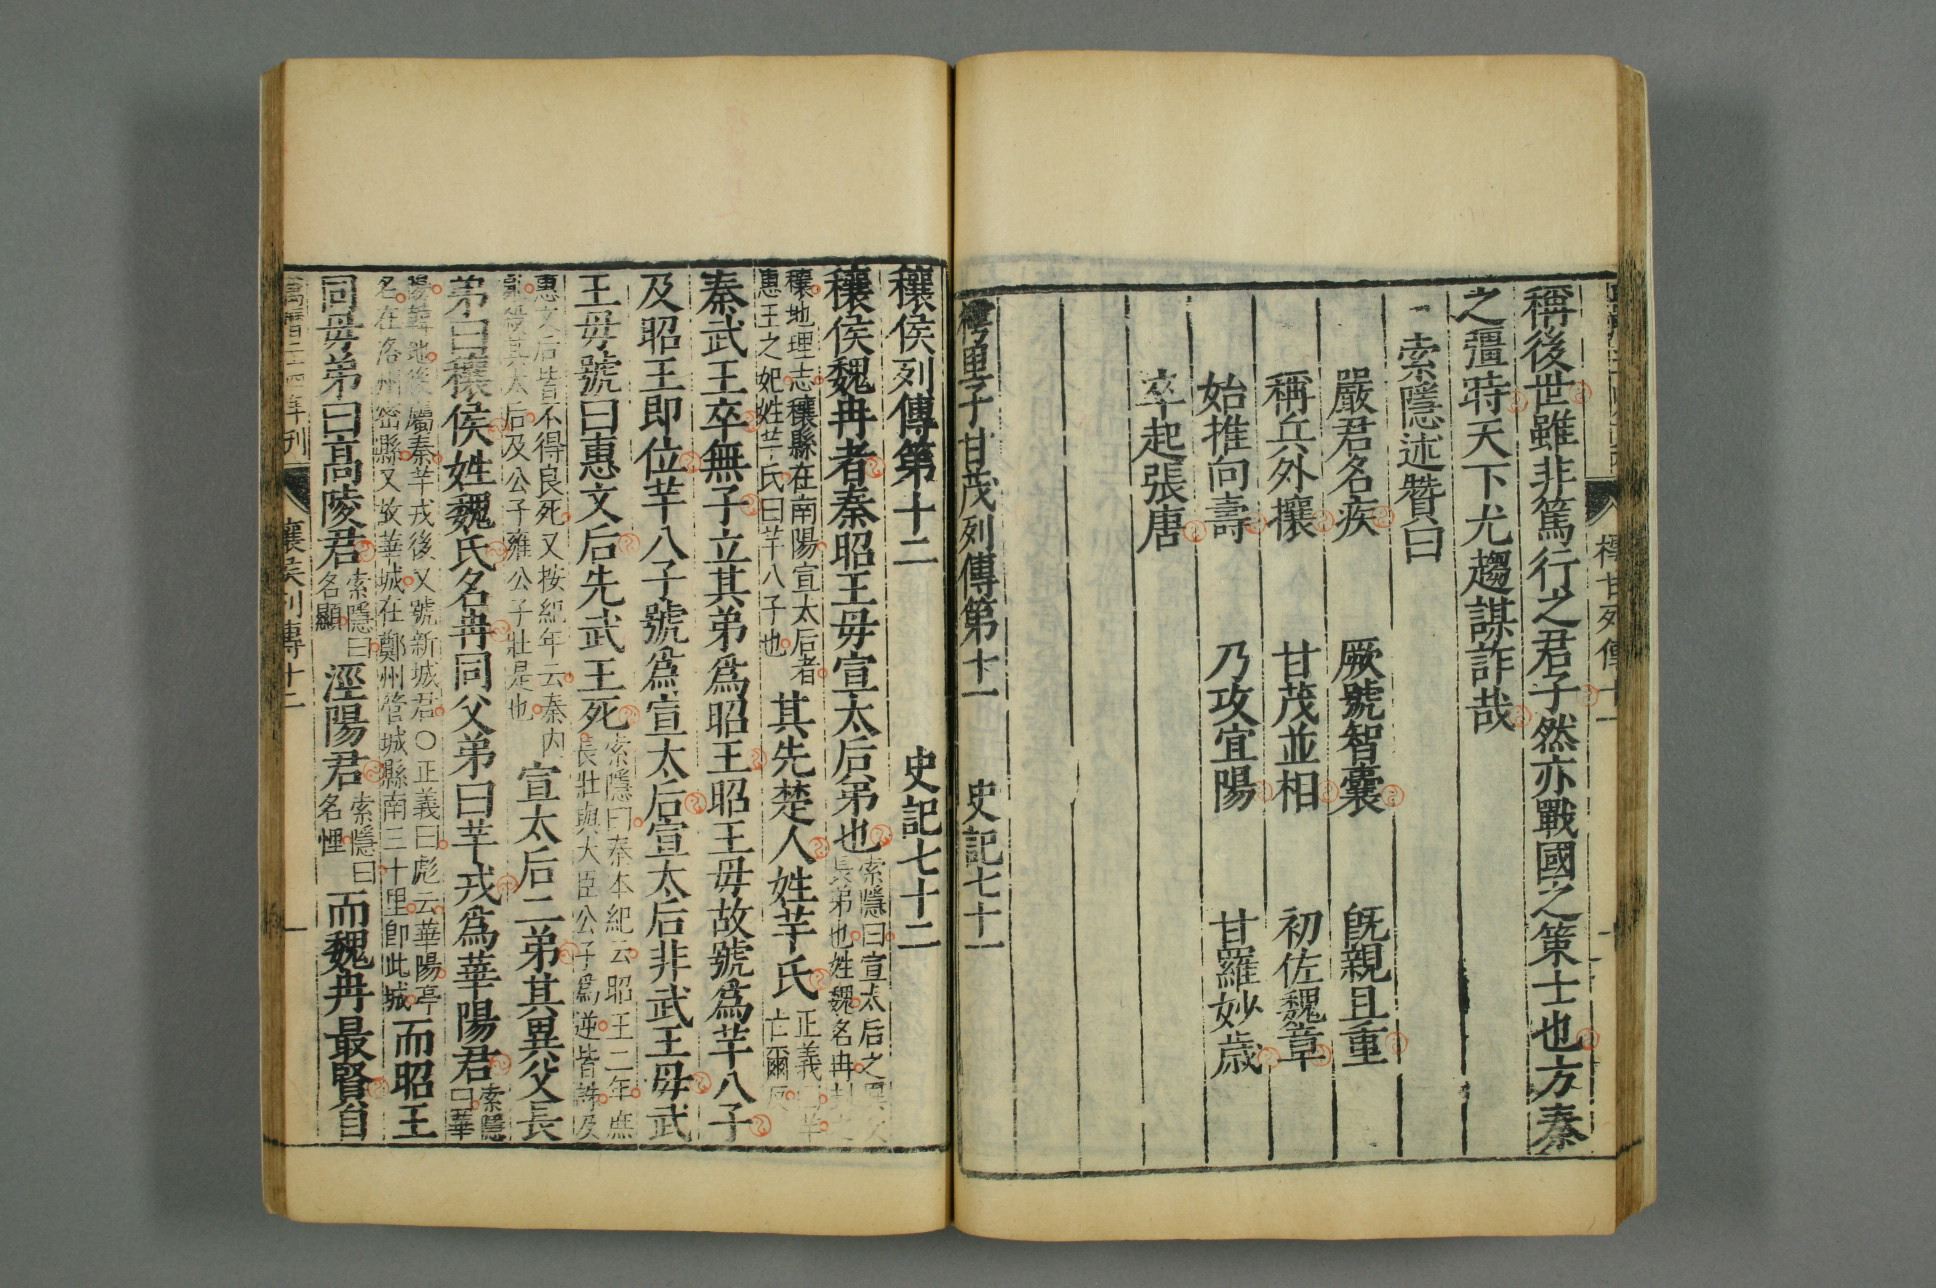 稱後世雖非篤行之君子然亦戰國之策士也方秦
之彊時天下尤趨謀詐哉
索隱述贊曰
嚴君名疾 厥號智囊 既親且重
稱兵外攘 甘茂並相 初佐魏章
始推向壽 乃攻宜陽 甘羅妙歲
卒起張唐
樗里子甘茂列傳第十一 史記七十一
穰侯列傳第十二 史記七十二
穰侯魏冉者秦昭王毋宣太后弟也索隱曰宣太后之異父
長弟也姓魏名冉封之
穰地理志穰縣在南陽宣太后者
惠王之妃姓芊氏曰芊八子也其先楚人姓芊氏正義曰芊
亡爾反
秦武王卒無子立其弟爲昭王昭王毋故號爲芊八子
及昭王即位芊八子號爲宣太后宣太后非武王毋武
王毋號曰惠文后先武王死索隱曰秦本紀云昭王二年庶
長壯與大臣公子爲逆皆誅及
惠文后皆不得良死又按紀年云秦内
亂殺其太后及公子雍公子壯是也宣太后二弟其異父長
弟曰穰侯姓魏氏名冉同父弟曰芊戎爲華陽君索隱
曰華
陽韓地後屬秦芊戎後又號新城君○正義曰彪云華陽亭
名在洛州密縣又故華城在鄭州管城縣南三十里卽此城而昭王
同毋弟曰高陵君索隱曰
名顯涇陽君索隱曰
名悝而魏冉最賢自
萬曆二十四年刋 穰侯列傳十二 一
樗甘列傳十一